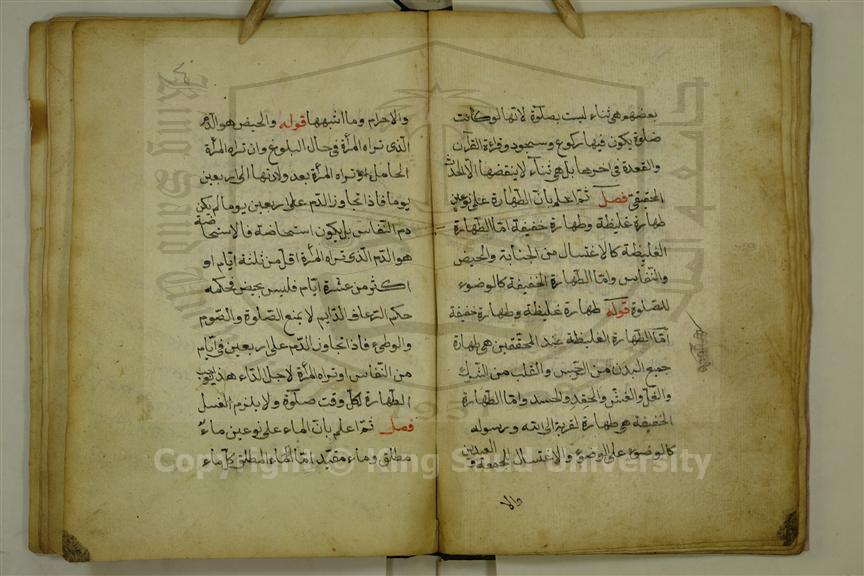 بعضهم هى ثناء ليست بصلوة لانها لو كانت
صلوة يكون فيها ركوع وسجود وقراءة القرآن
والقعدة فى اخرها بل هى ثناء لا ينقضها الا الحدث
الحقيقى فصل ثم اعلم بان الطهارة على نوعين
طهارة غليظة وطهارة خفيفة اما الطهارة
الغليظة كالاغتسال من الجنابة والحيض
والنفاس واما الطهارة الخفيفة كالوضوء
للصلوة قوله طهارة غليظة وطهارة خفيفة
اما الطهارة الغليظة عند المحققين هى طهارة
جميع البدن من النجس والقلب من الشرك
والغل والغش والحقد والحسد واما الطهارة
الخفيفة هى طهارة لقربة الى الله ورسوله
كالوضوء على الوضوء والاغتسال للجمعة والعيدين
والا
والاحرام وما اشبهها قوله والحيض هو الدم
الذى تراه المرأة فى حال البلوغ وان تراه المرأة
الحامل او تراه المرأة بعد ولادتها الى اربعين
يوما فاذا تجاوز الدم على اربعين يوما لم يكن
دم النفاس بل يكون استحاضة فالاستحاضة
هو الدم الذى تراه المرأة اقل من ثلثة ايام او
اكثر من عشرة ايام فليس بحيض فحكمه
حكم الرعاف الدايم لا يمنع الصلوة والصوم
والوطئ فاذا تجاوز الدم على اربعين فى ايام
من النفاس او تراه المرأة لاجل الداء هذا يوجب
الطهارة لكل وقت صلوة ولا يلزم الغسل
فصل ثم اعلم بان الماء على نوعين ماء
مطلق وماء مقيد اما الماء المطلق كل ماء
King Saud University
جامعة الملك سعود
1957
Copyright © King Saud University